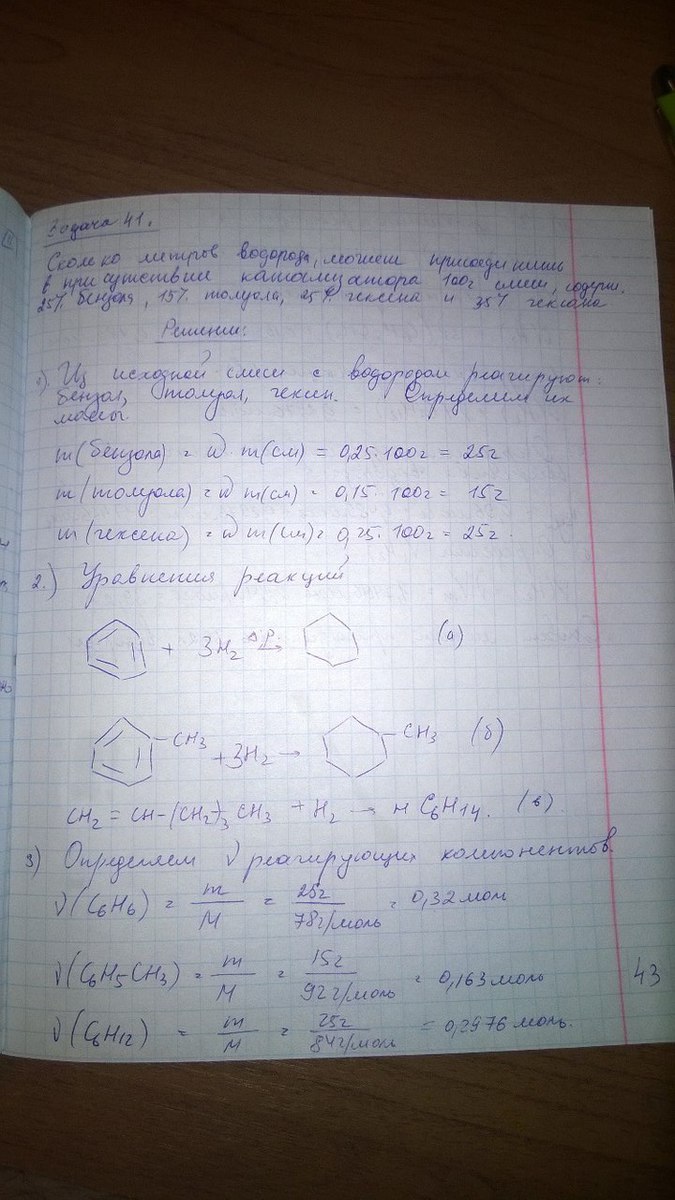 Задача 41.
Сколько литров водорода, может присоединить
в присутствие катализатора 100г смеси, содерж.
25% бензола, 15% толуола, 25% гексена и 35% гексана
Решение:
1). Из исходной смеси с водородом реагируют:
бензол, толуол, гексен. Определим их
массы.
m(бензола) = ω · m(см) = 0,25·100г = 25г
m(толуола) = ω m(см) = 0,15·100г = 15г
m(гексена) = ω m(см) = 0,25·100г = 25г.
2.) Уравнения реакций
+ 3H2 → (а)
CH3 + 3H2 → CH3 (б)
CH2 = CH-(CH2)3 CH3 + H2 → н C6H14. (в).
3) Определяем ν реагирующих компонентов
ν(C6H6) = m/M = 25г/78г/моль = 0,32 моль
ν(C6H5CH3) = m/M = 15г/92г/моль = 0,163 моль
43
ν(C6H12) = m/M = 25г/84г/моль = 0,2976 моль.